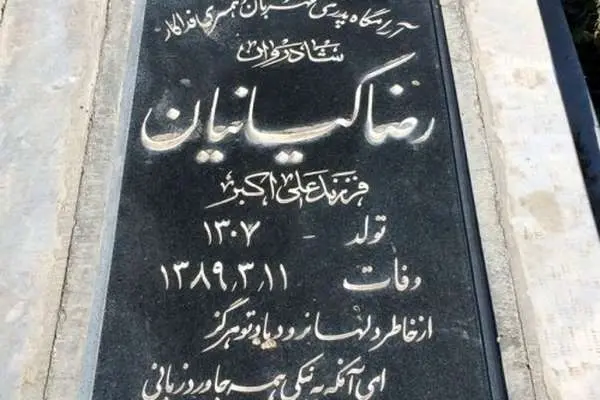 آرامگاه پدری مهربان همسری فداکار
شادروان
رضا کیانیان
فرزند علی اکبر
تولد - ۱۳۰۷
وفات ۱۳۸۹٫۳٫۱۱
از خاطر دلها نرود یاد تو هرگز
ای آنکه به نیکی همه جا ورد زبانی